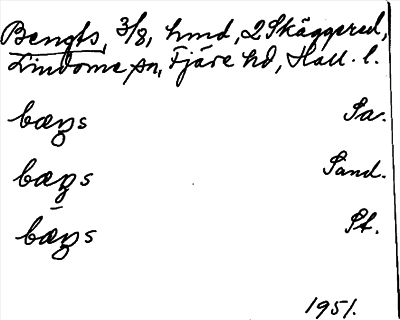 Bengts, 3/8, hmd, 2 Skäggered,
Lindome sn, Fjäre hd, Hall. l.
bæŋs Sa.
bæŋs Sand.
bæŋs St.
1951.